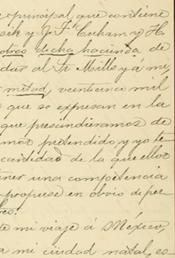 principal, que contiene
y J. F. Cusham y H.
dha hacienda de
dar al Sr Mills y á mi,
mitad, veinticinco mil
que se expresan en la
que prescindieramos de
mos pretendido y yo te
cantidad de la que ellos
ner una competencia
propuse en obvio de per
mi viaje á México,
mi ciudad natal, es